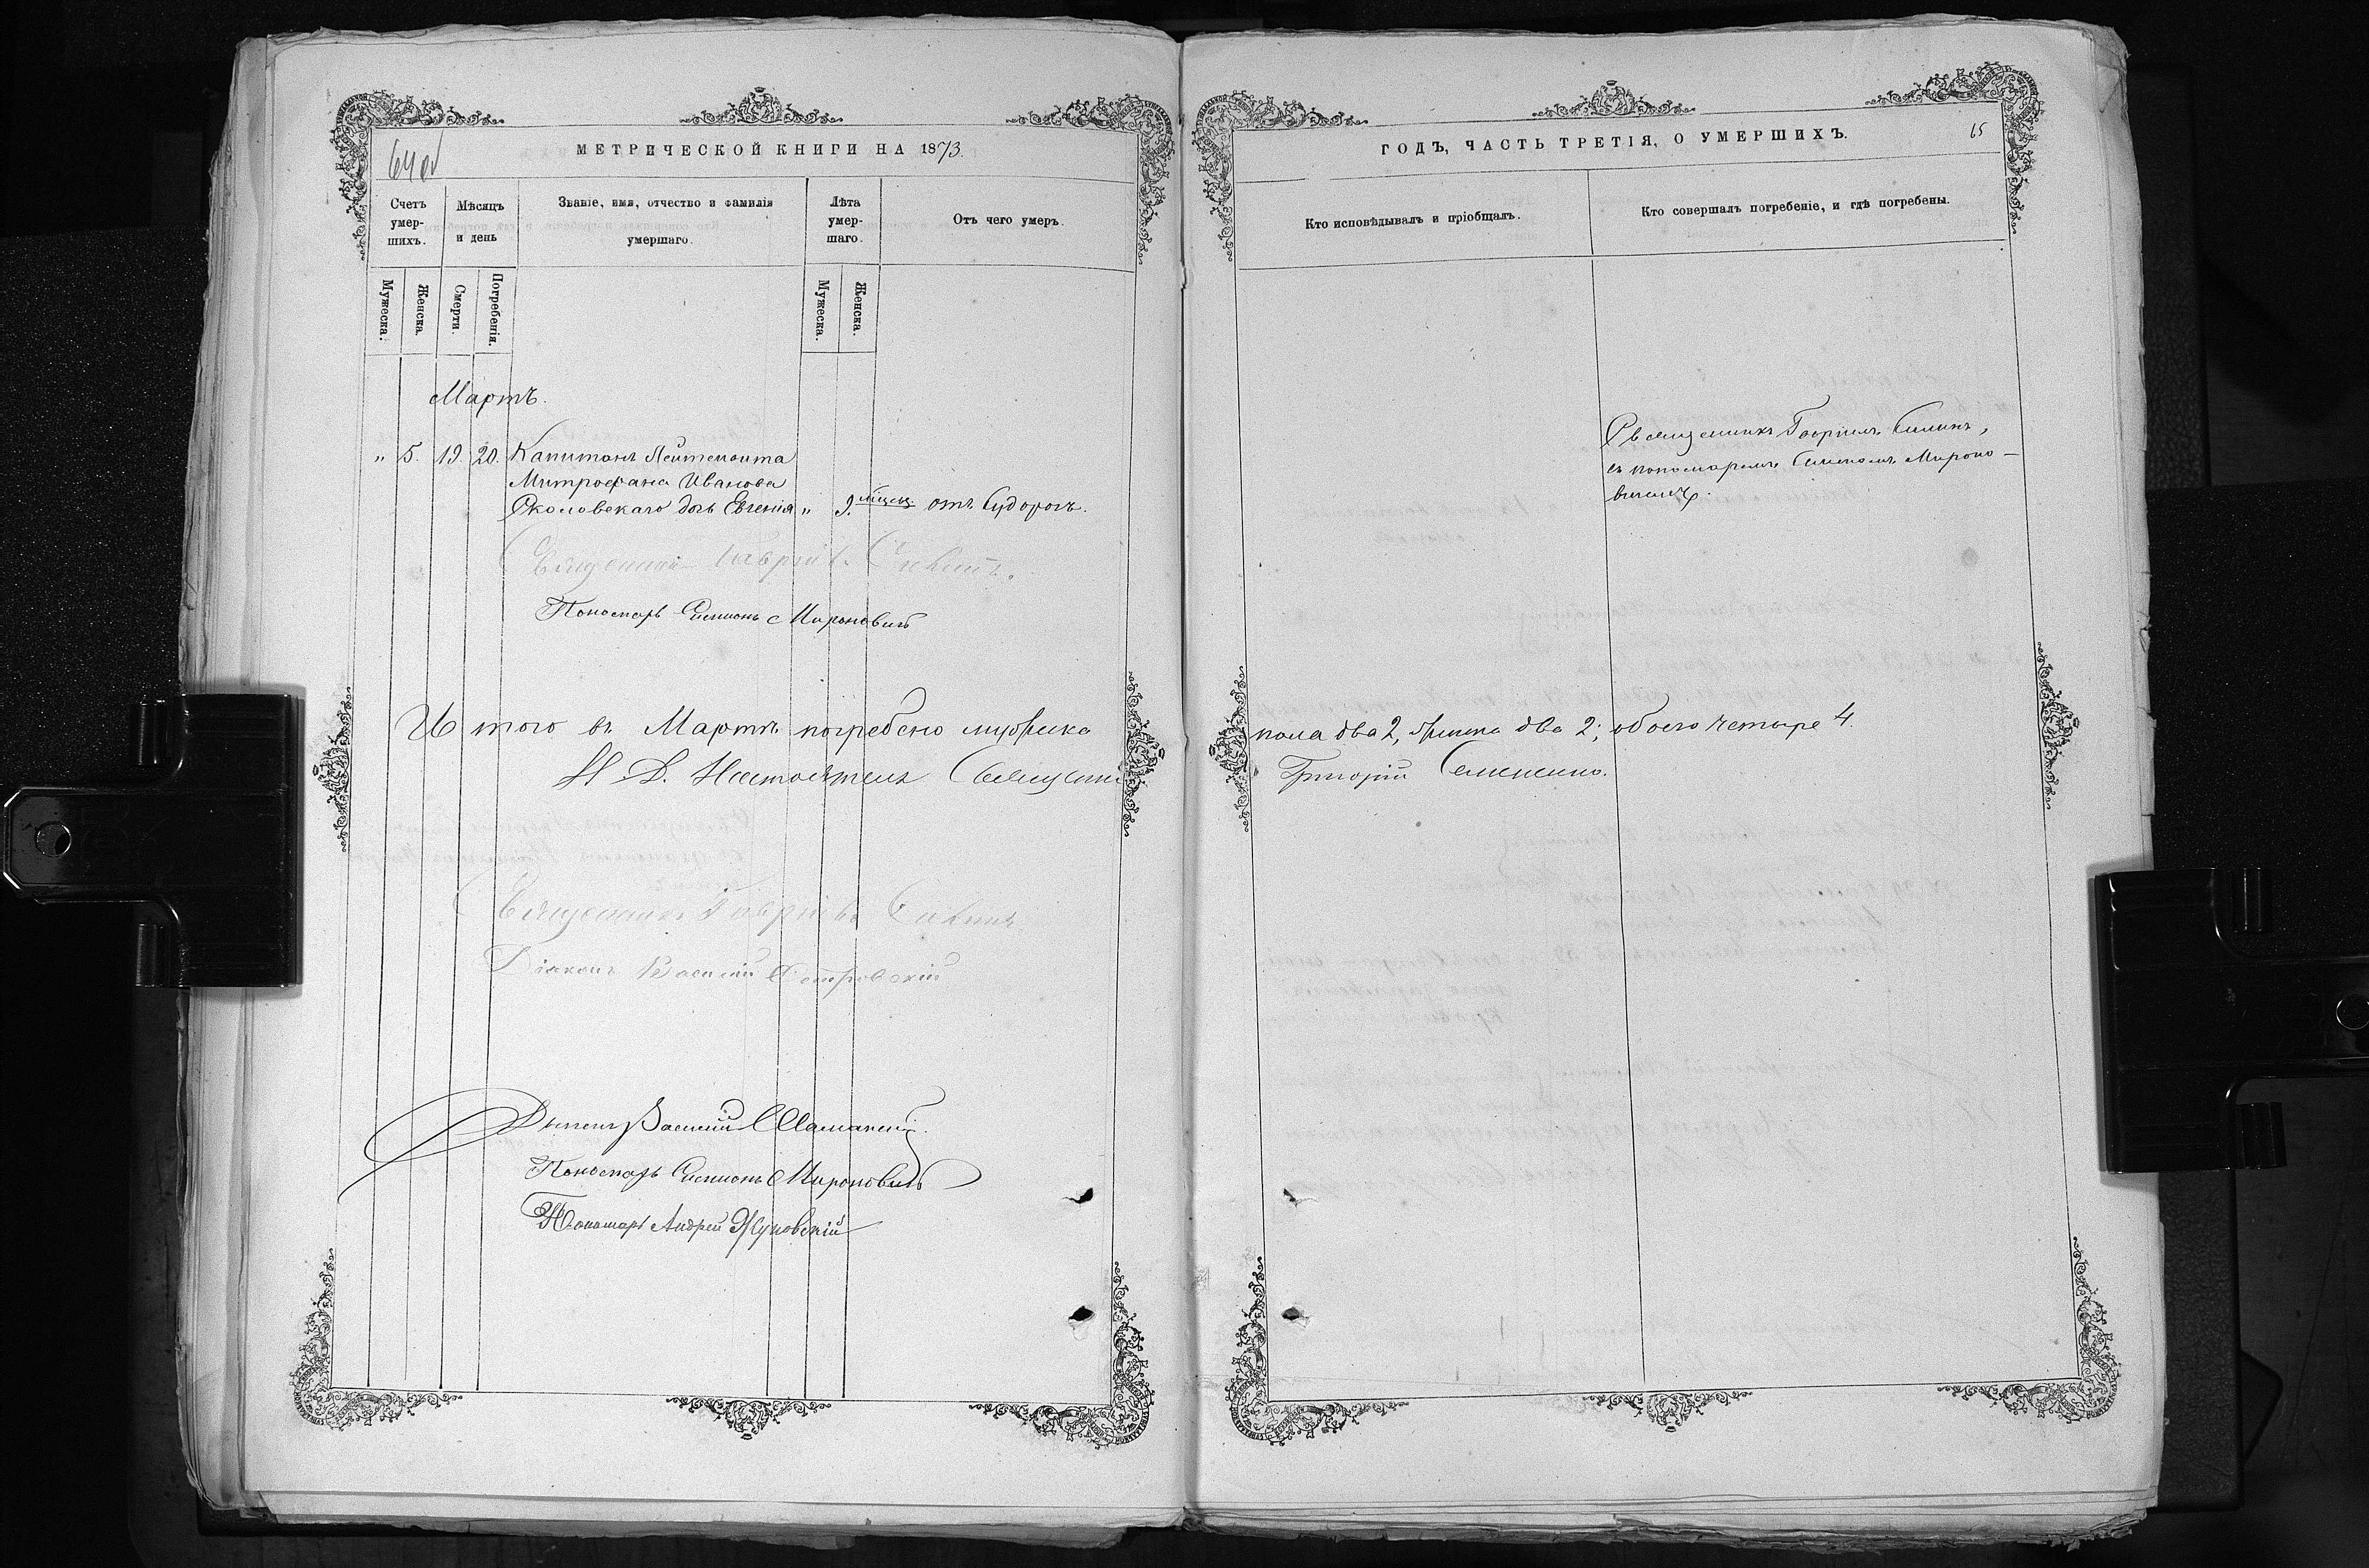 64 об
МЕТРИЧЕСКОЙ КНИГИ НА 1873.
Счетъ умер-шихъ.
Мѣсяцъ и день
Званіе, имя, отчество и фамилія умершаго.
Лѣта умер-шаго.
Отъ чего умеръ.
Мужеска.
Женска.
Смерти.
Погребенія.
Мужеска.
Женска.
Мартъ.
" 5. 19. 20. Капитанъ Лейтенанта
Митрофана Иванова
дочь Евгенія " 9. месяц. отъ Судорогъ.
Священникъ Гавріилъ
Пономарь Симеонъ Мироновичъ
Итого въ Мартѣ погребено мужеска
И. Д. Настоятеля Священникъ
Священникъ Гавріилъ
Діаконъ Василій Петровскій
Василій
Пономарь Симеонъ Мироновичъ
Пономарь Андрей Жуковскій
ГОДЪ, ЧАСТЬ ТРЕТІЯ, О УМЕРШИХЪ.
65
Кто исповѣдывалъ и пріобщалъ.
Кто совершалъ погребеніе, и гдѣ погребены.
Священникъ Гавріилъ
съ пономаремъ Симеономъ Мироно-
вичемъ.
пола два 2, женска два 2; обоего четыре 4.
Григорій Семененко.